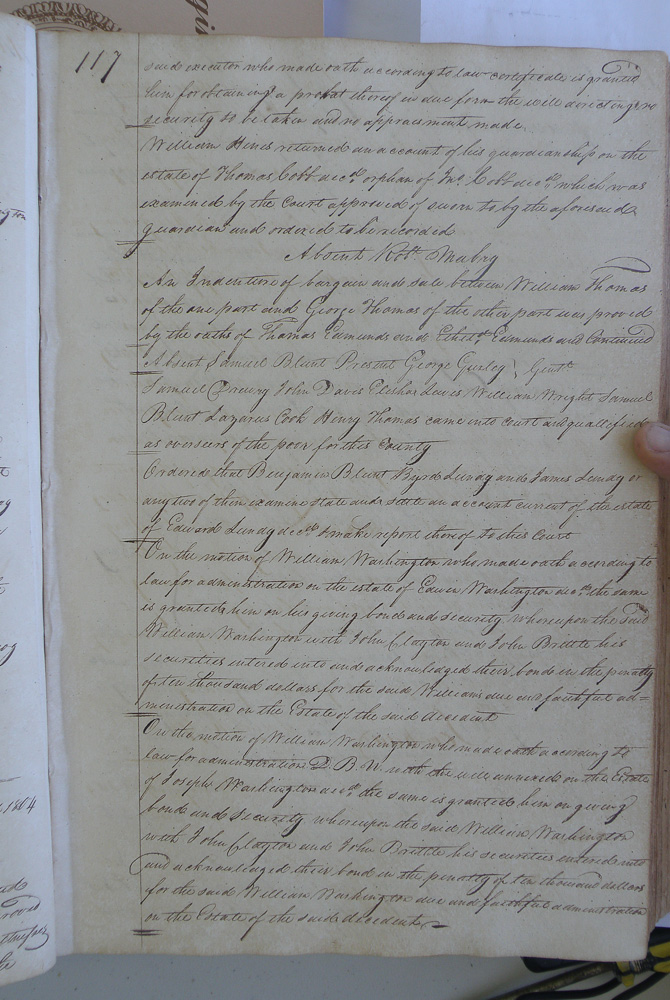 117
said executor who made oath according to law certificate is granted
him for obtaining a probat thereof in due form the will directing no
security to be taken and no appraisment made
William Hines returned an account of his guardianship on the
estate of Thomas Cobb decd. orphan of Jno. Cobb decd. which was
examined by the Court approved of sworn to by the aforesaid
guardian and ordered to be recorded
Absent Robt. Mabry
An Indenture of bargain and sale between William Thomas
of the one part and George Thomas of the other part was proved
by the oaths of Thomas Edmunds and Etheld. Edmunds and Continued
Absent Samuel Blunt Present George Gurley, Gentn.
Samuel Drewry John Davis Elisha Lewis William Wright Samuel
Blunt Lazarus Cook Henry Thomas came into Court and quallified
as overseers of the poor for this County
Ordered that Benjamin Blunt Byrd Lundy and James Lundy or
any two of them examine state and settle an account current of the estate
of Edward Lundy decd. & make report thereof to this Court
On the motion of William Washington who made oath according to
law for administration on the estate of Edwin Washington decd. the same
is granted him on his giving bond and security whereupon the said
William Washington with John Clayton and John Brittle his
securities entered into and acknowledged their bond in the penalty
of ten thousand dollars for the said Williams due and faithful ad=
ministration on the Estate of the said decedent
On the motion of William Washington who made oath according to
law for administration D. B. N. with the will annexed on the Estate
of Joseph Washington decd. the same is granted him on giving
bond and security whereupon the said William Washington
with John Clayton and John Brittle his securities entered into
and acknowledged their bond in the penalty of ten thousand dollars
for the said William Washington due and faithful administration
on the Estate of the said decedent
1804